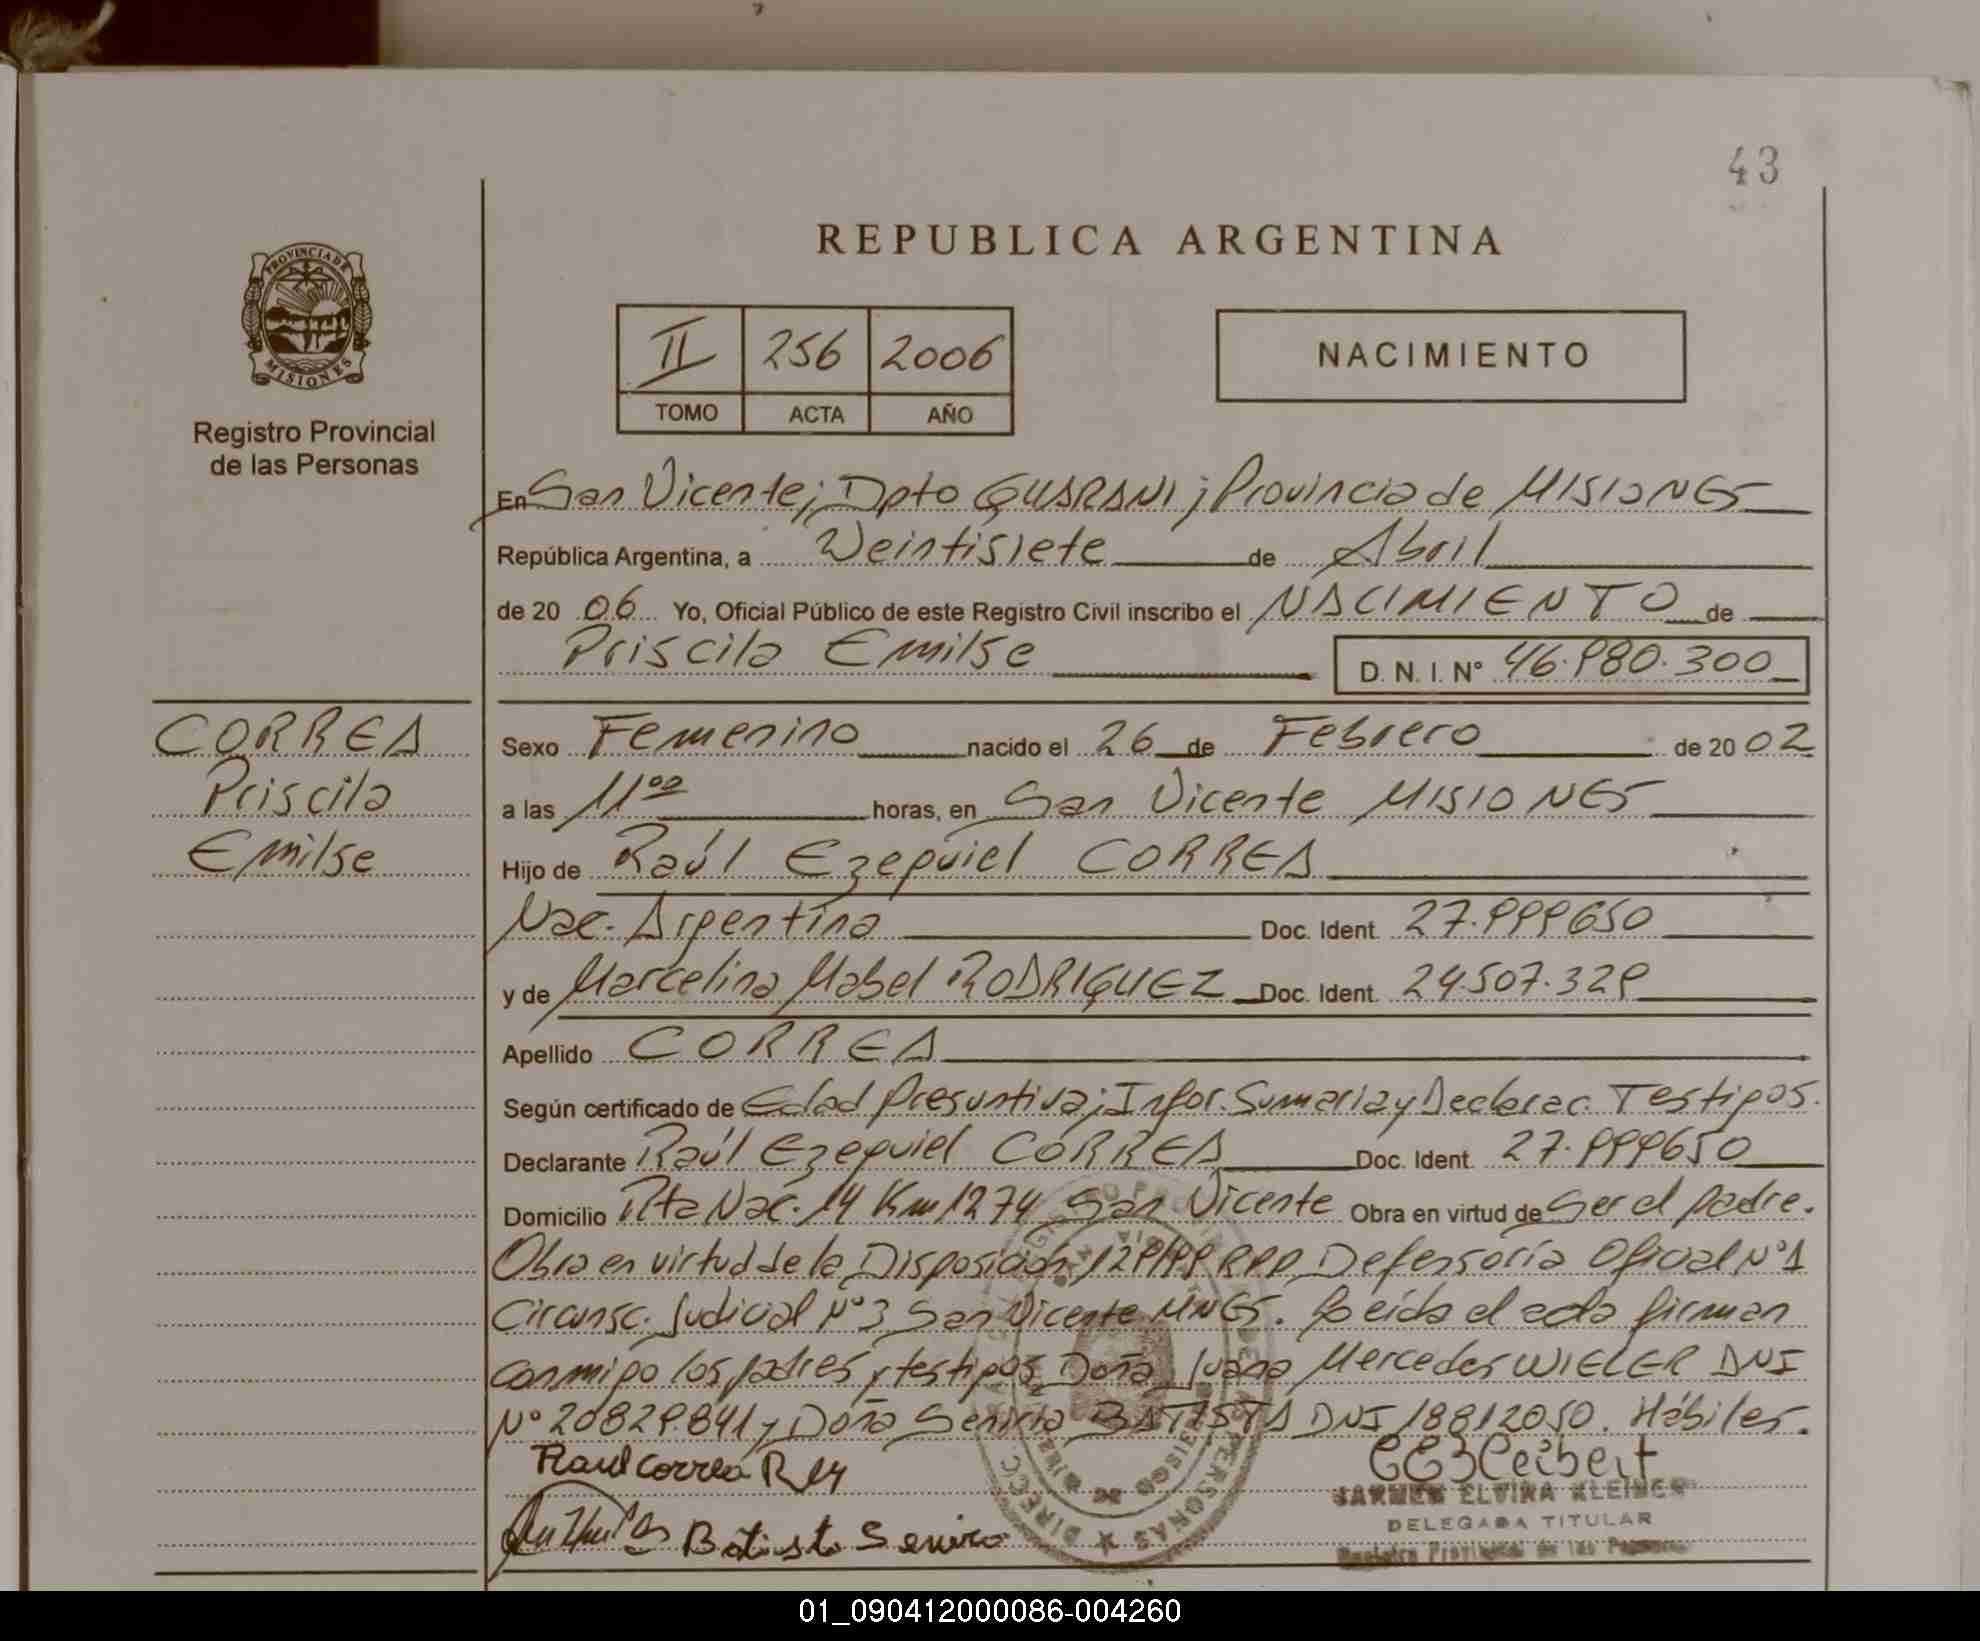 43
REPUBLICA ARGENTINA
PROVINCIA DE
MISIONES
Registro Provincial
de las Personas
II 256 2006
TOMO ACTA AÑO
NACIMIENTO
En San Vicente; Dpto GUARANI; Provincia de MISIONES
República Argentina, a Veintisiete de Abril
de 20 06 Yo, Oficial Público de este Registro Civil inscribo el NACIMIENTO de
Priscila Emilse D. N. I. Nº 46.980.300
CORREA
Priscila
Emilse
Sexo Femenino nacido el 26 de Febrero de 20 02
a las 11ºº horas, en San Vicente MISIONES
Hijo de Raúl Ezequiel CORREA
Nac. Argentina Doc. Ident. 27.999650
y de Marcelina Mabel RODRIGUEZ Doc. Ident. 24.507.329
Apellido CORREA
Según certificado de Edad Presuntiva; Infor. Sumaria y Declarac. Testigos.
Declarante Raúl Ezequiel CORREA Doc. Ident. 27.999650
Domicilio Rta Nac. 14 Km 1274 San Vicente Obra en virtud de Ser el padre.
Obra en virtud de la Disposición 129/99 RPP Defensoría Oficial Nº1
Circunsc. Judicial Nº3 San Vicente MNES. Leída el acta firman
conmigo los padres y testigos Doña Juana Mercedes WIELER DNI
Nº 20829.841 y Doña Senicia BATISTA DNI 18812050. Hábiles.
Raul Correa
Batista
CARMEN ELVIRA KLEINER
DELEGADA TITULAR
Registro Provincial de las Personas
01_090412000086-004260